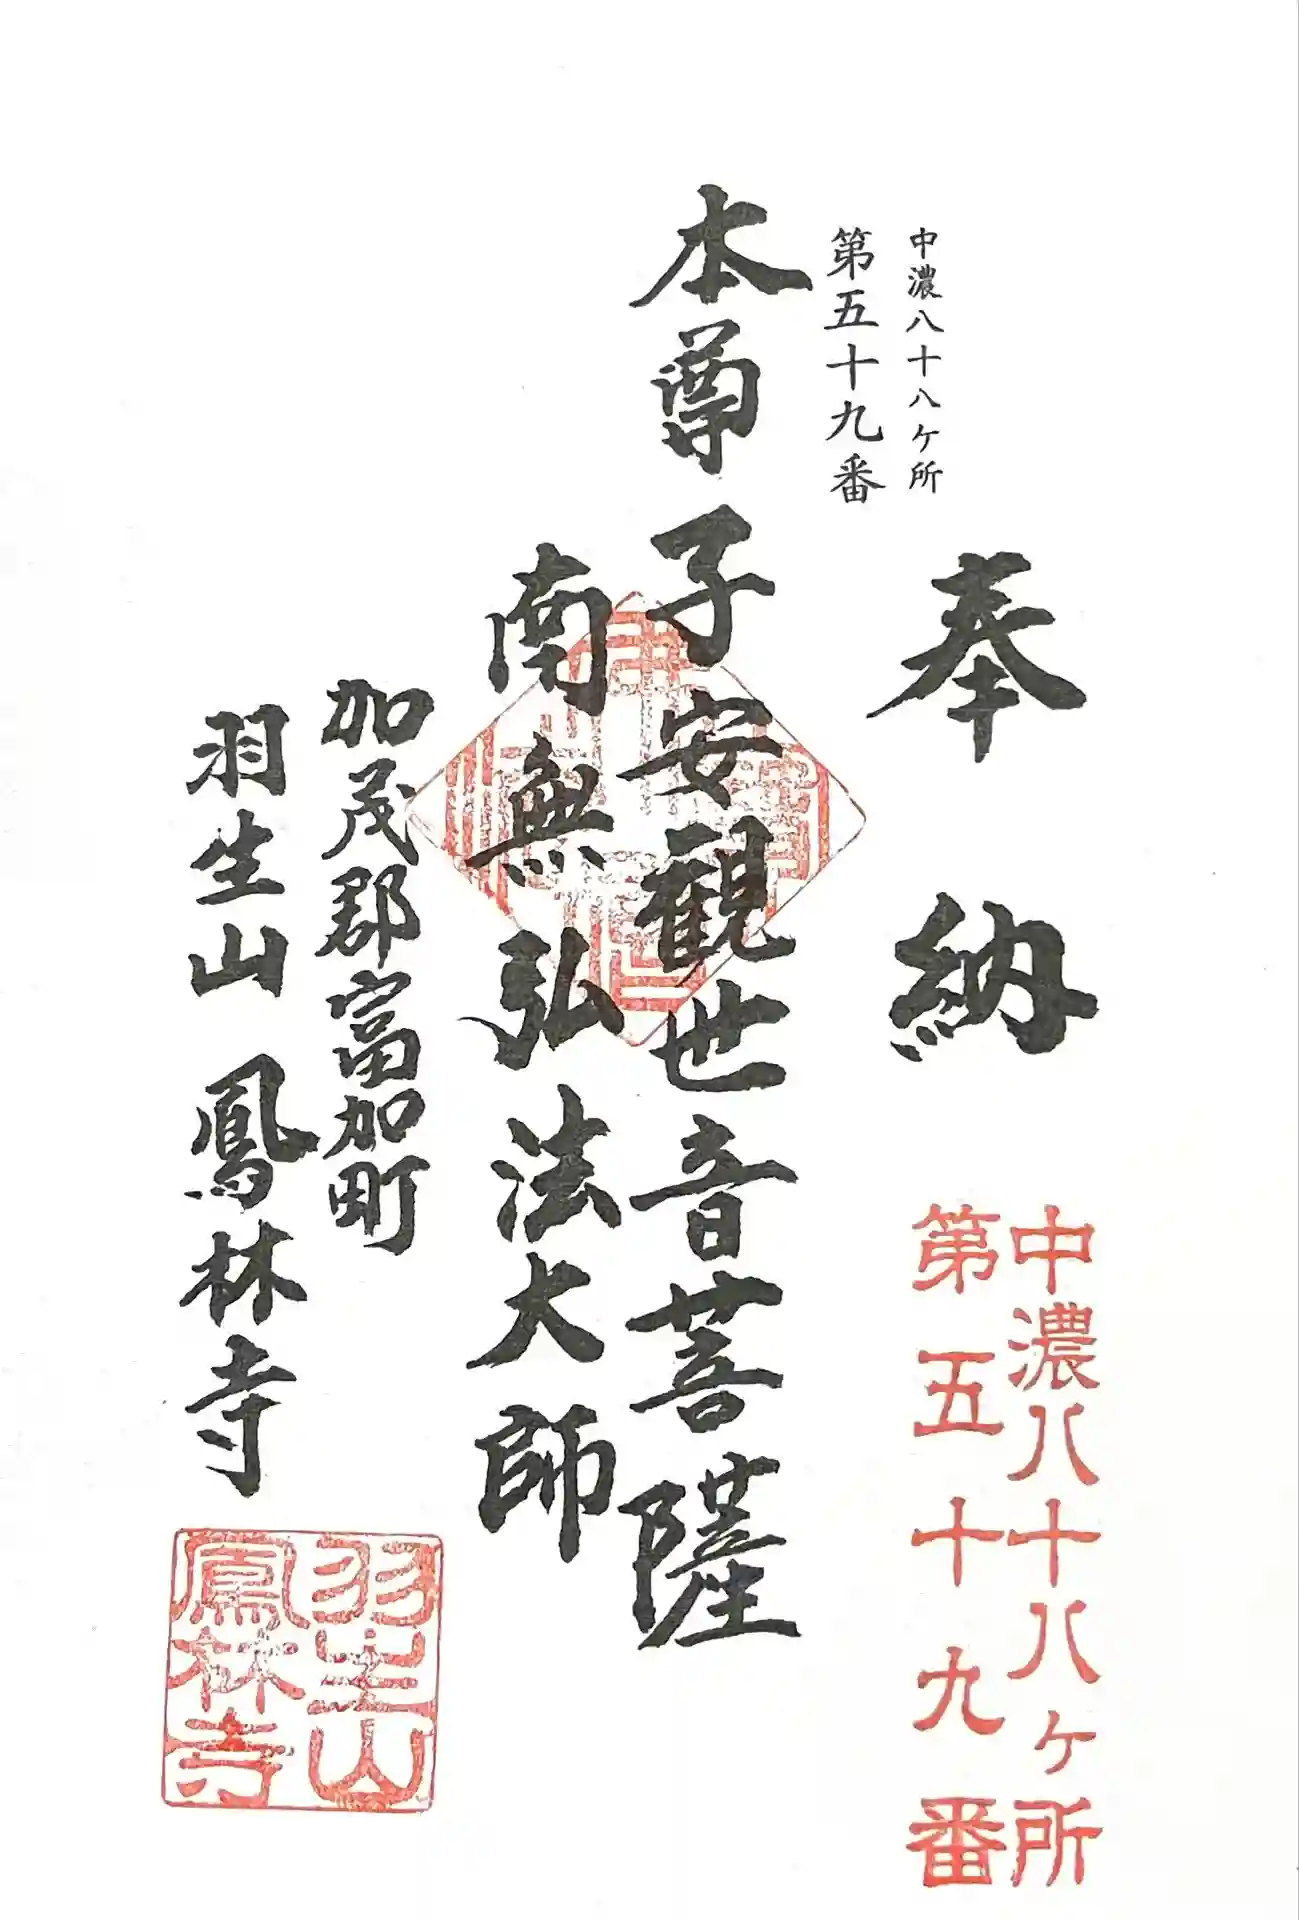 中濃八十八ヶ所
第五十九番
奉納
中濃八十八ヶ所
第五十九番
本尊子安観世音菩薩
南無弘法大師
加茂郡富加町
羽生山鳳林寺
羽生山
鳳林寺